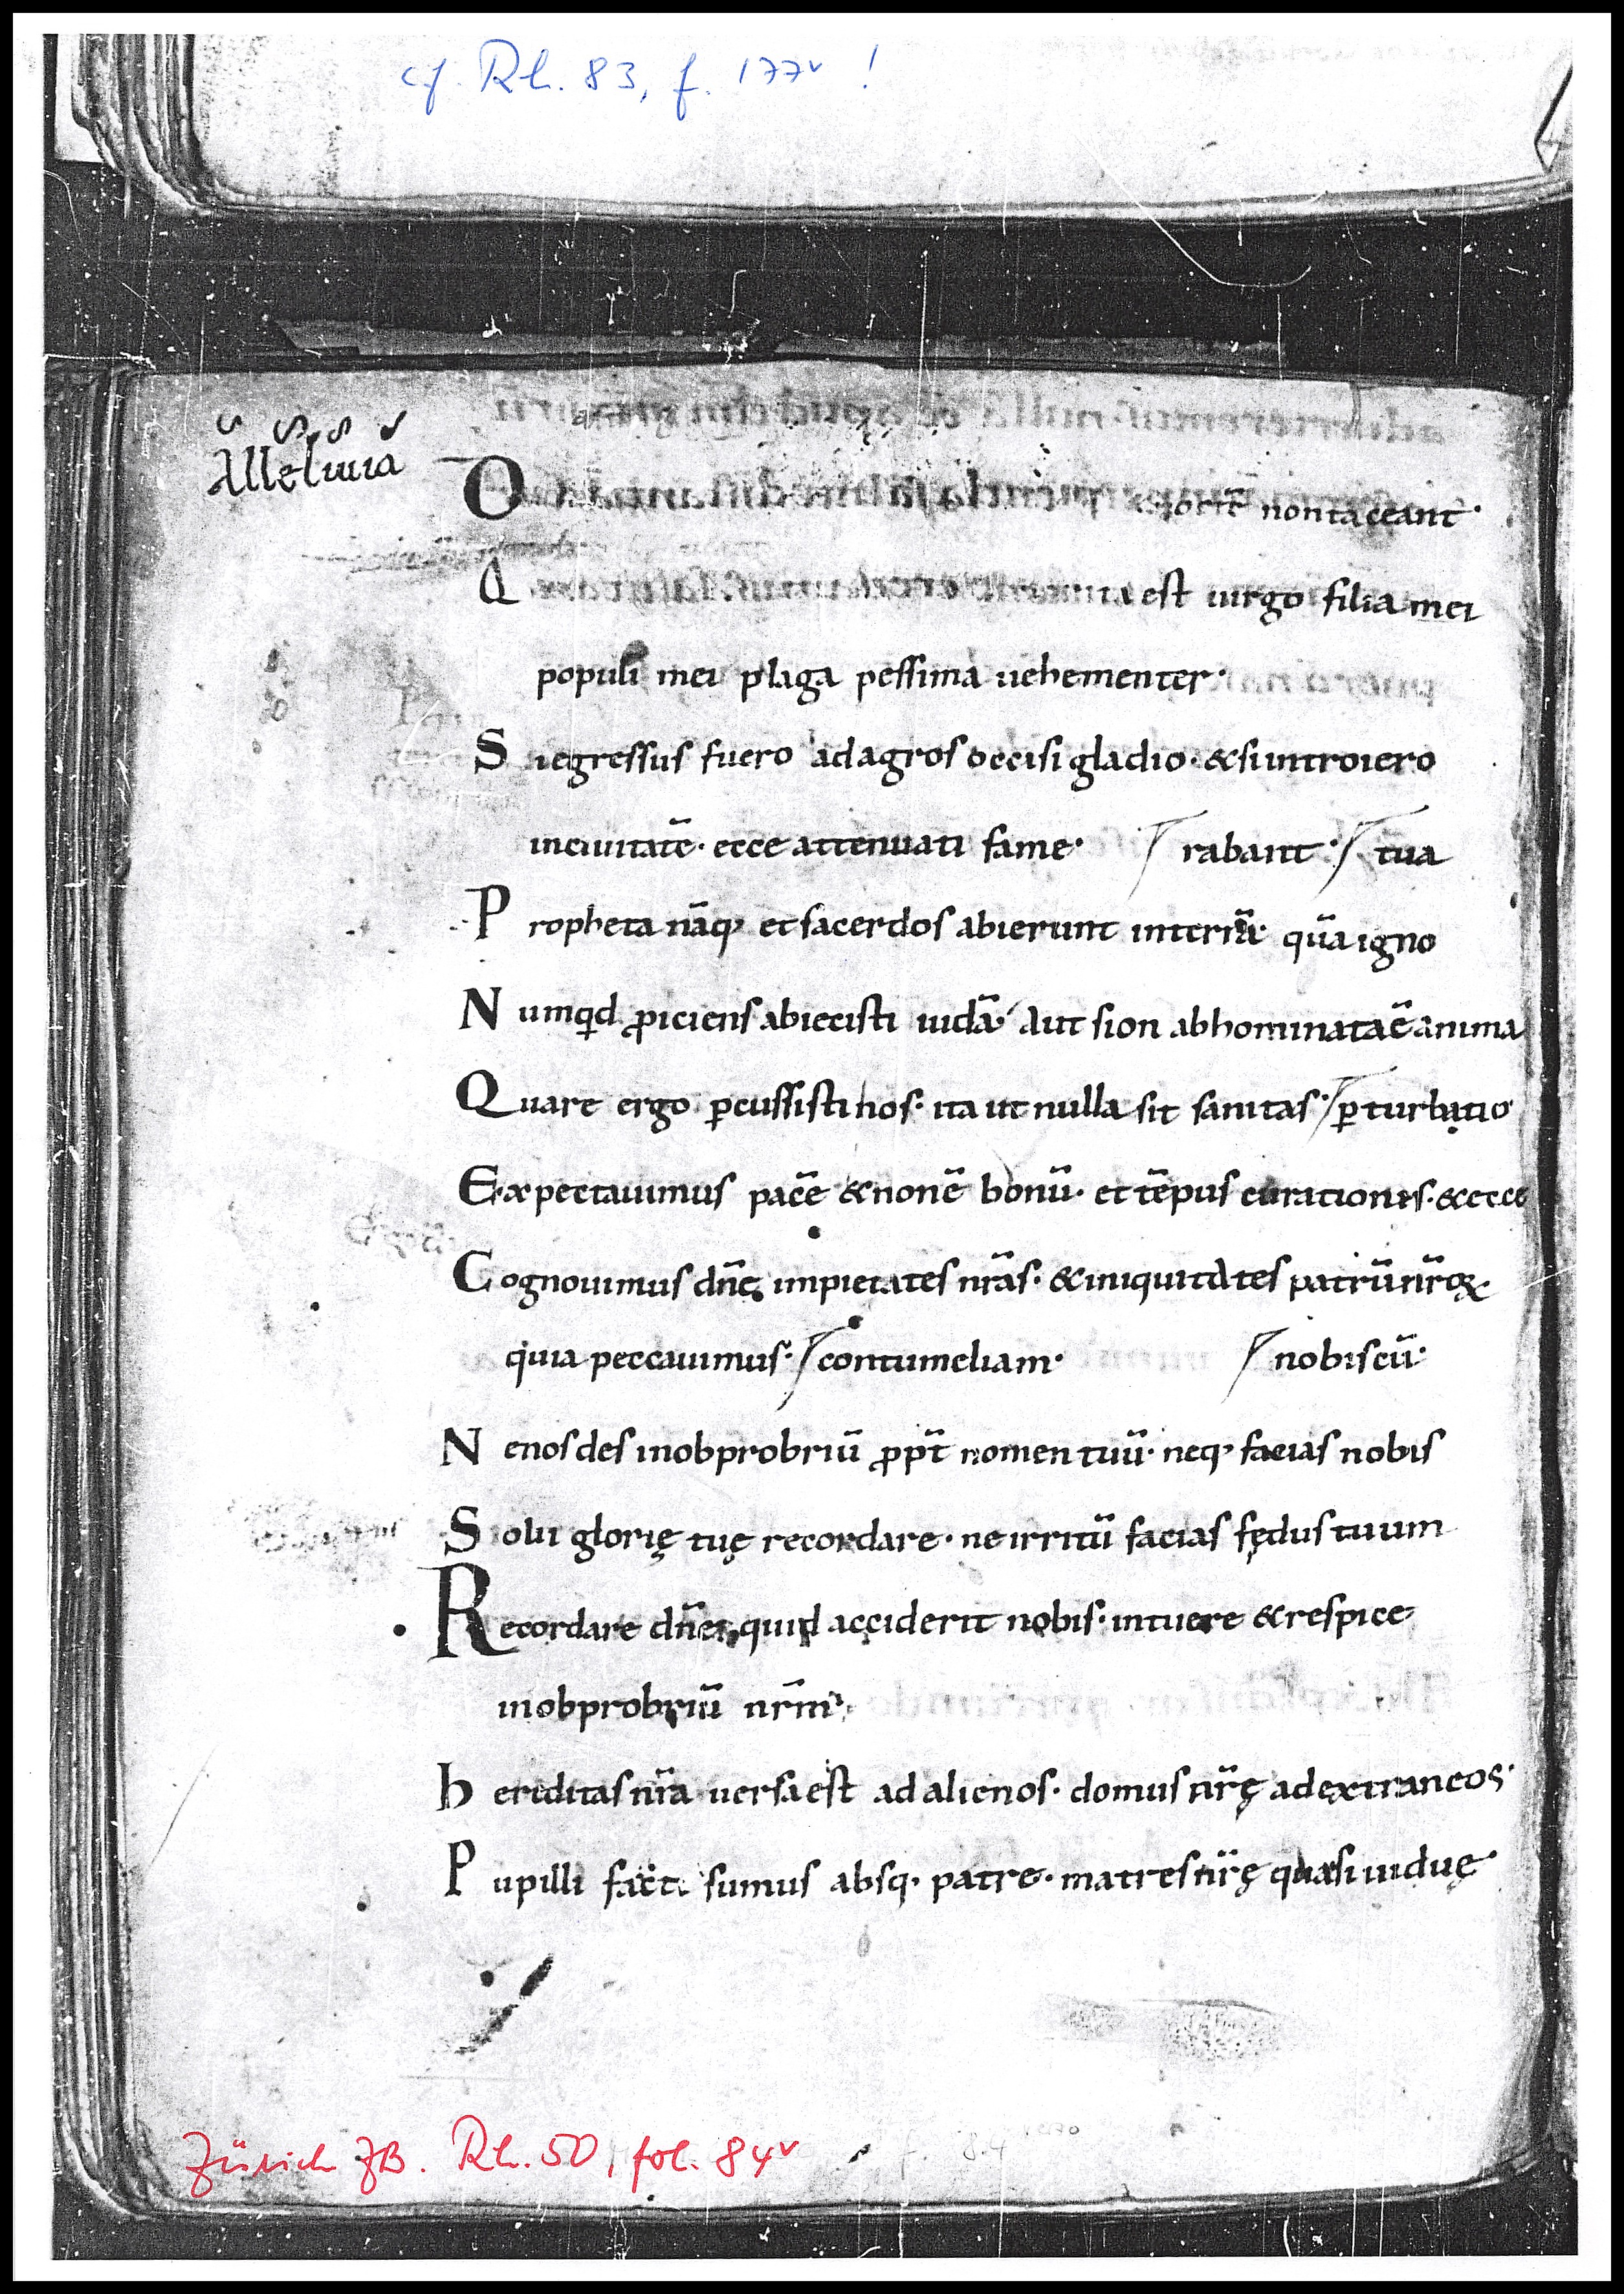 cf. Rh. 83, f. 177v !
alleluia
O non taceant·
est uirgo filia mei
populi mei plaga pessima uehementer·
S i egressus fuero ad agros occisi gladio· & si introiero
in ciuitatē· ecce attenuati fame· rabant· tua
P ropheta nāq; et sacerdos abierunt in terrā quā igno
N umqd ꝓiciens abiecisti iudā· aut sion abhominata ē anima
Q uare ergo ꝑcussisti nos· ita ut nulla sit sanitas· ꝑturbatio
E xpectauimus pacē & non ē bonū· et tēpus curationis· & ecce
C ognouimus dn̄e impietates nr̄as· & iniquitates patrū nr̄oꝝ
quia peccauimus· contumeliam· nobiscū·
N e nos des in obprobriū ꝓpt̄ nomen tuū· neq; facias nobis
S olii glorię tuę recordare· ne irritū facias fędus tuum
R ecordare dn̄e quid acciderit nobis· intuere & respice
in obprobriū nr̄m
h ereditas nr̄a uersa est ad alienos· domus nr̄ę ad extraneos·
P upilli facti sumus absq; patre· matres nr̄ę quasi uiduę·
Zürich ZB. Rh. 50, fol. 84v